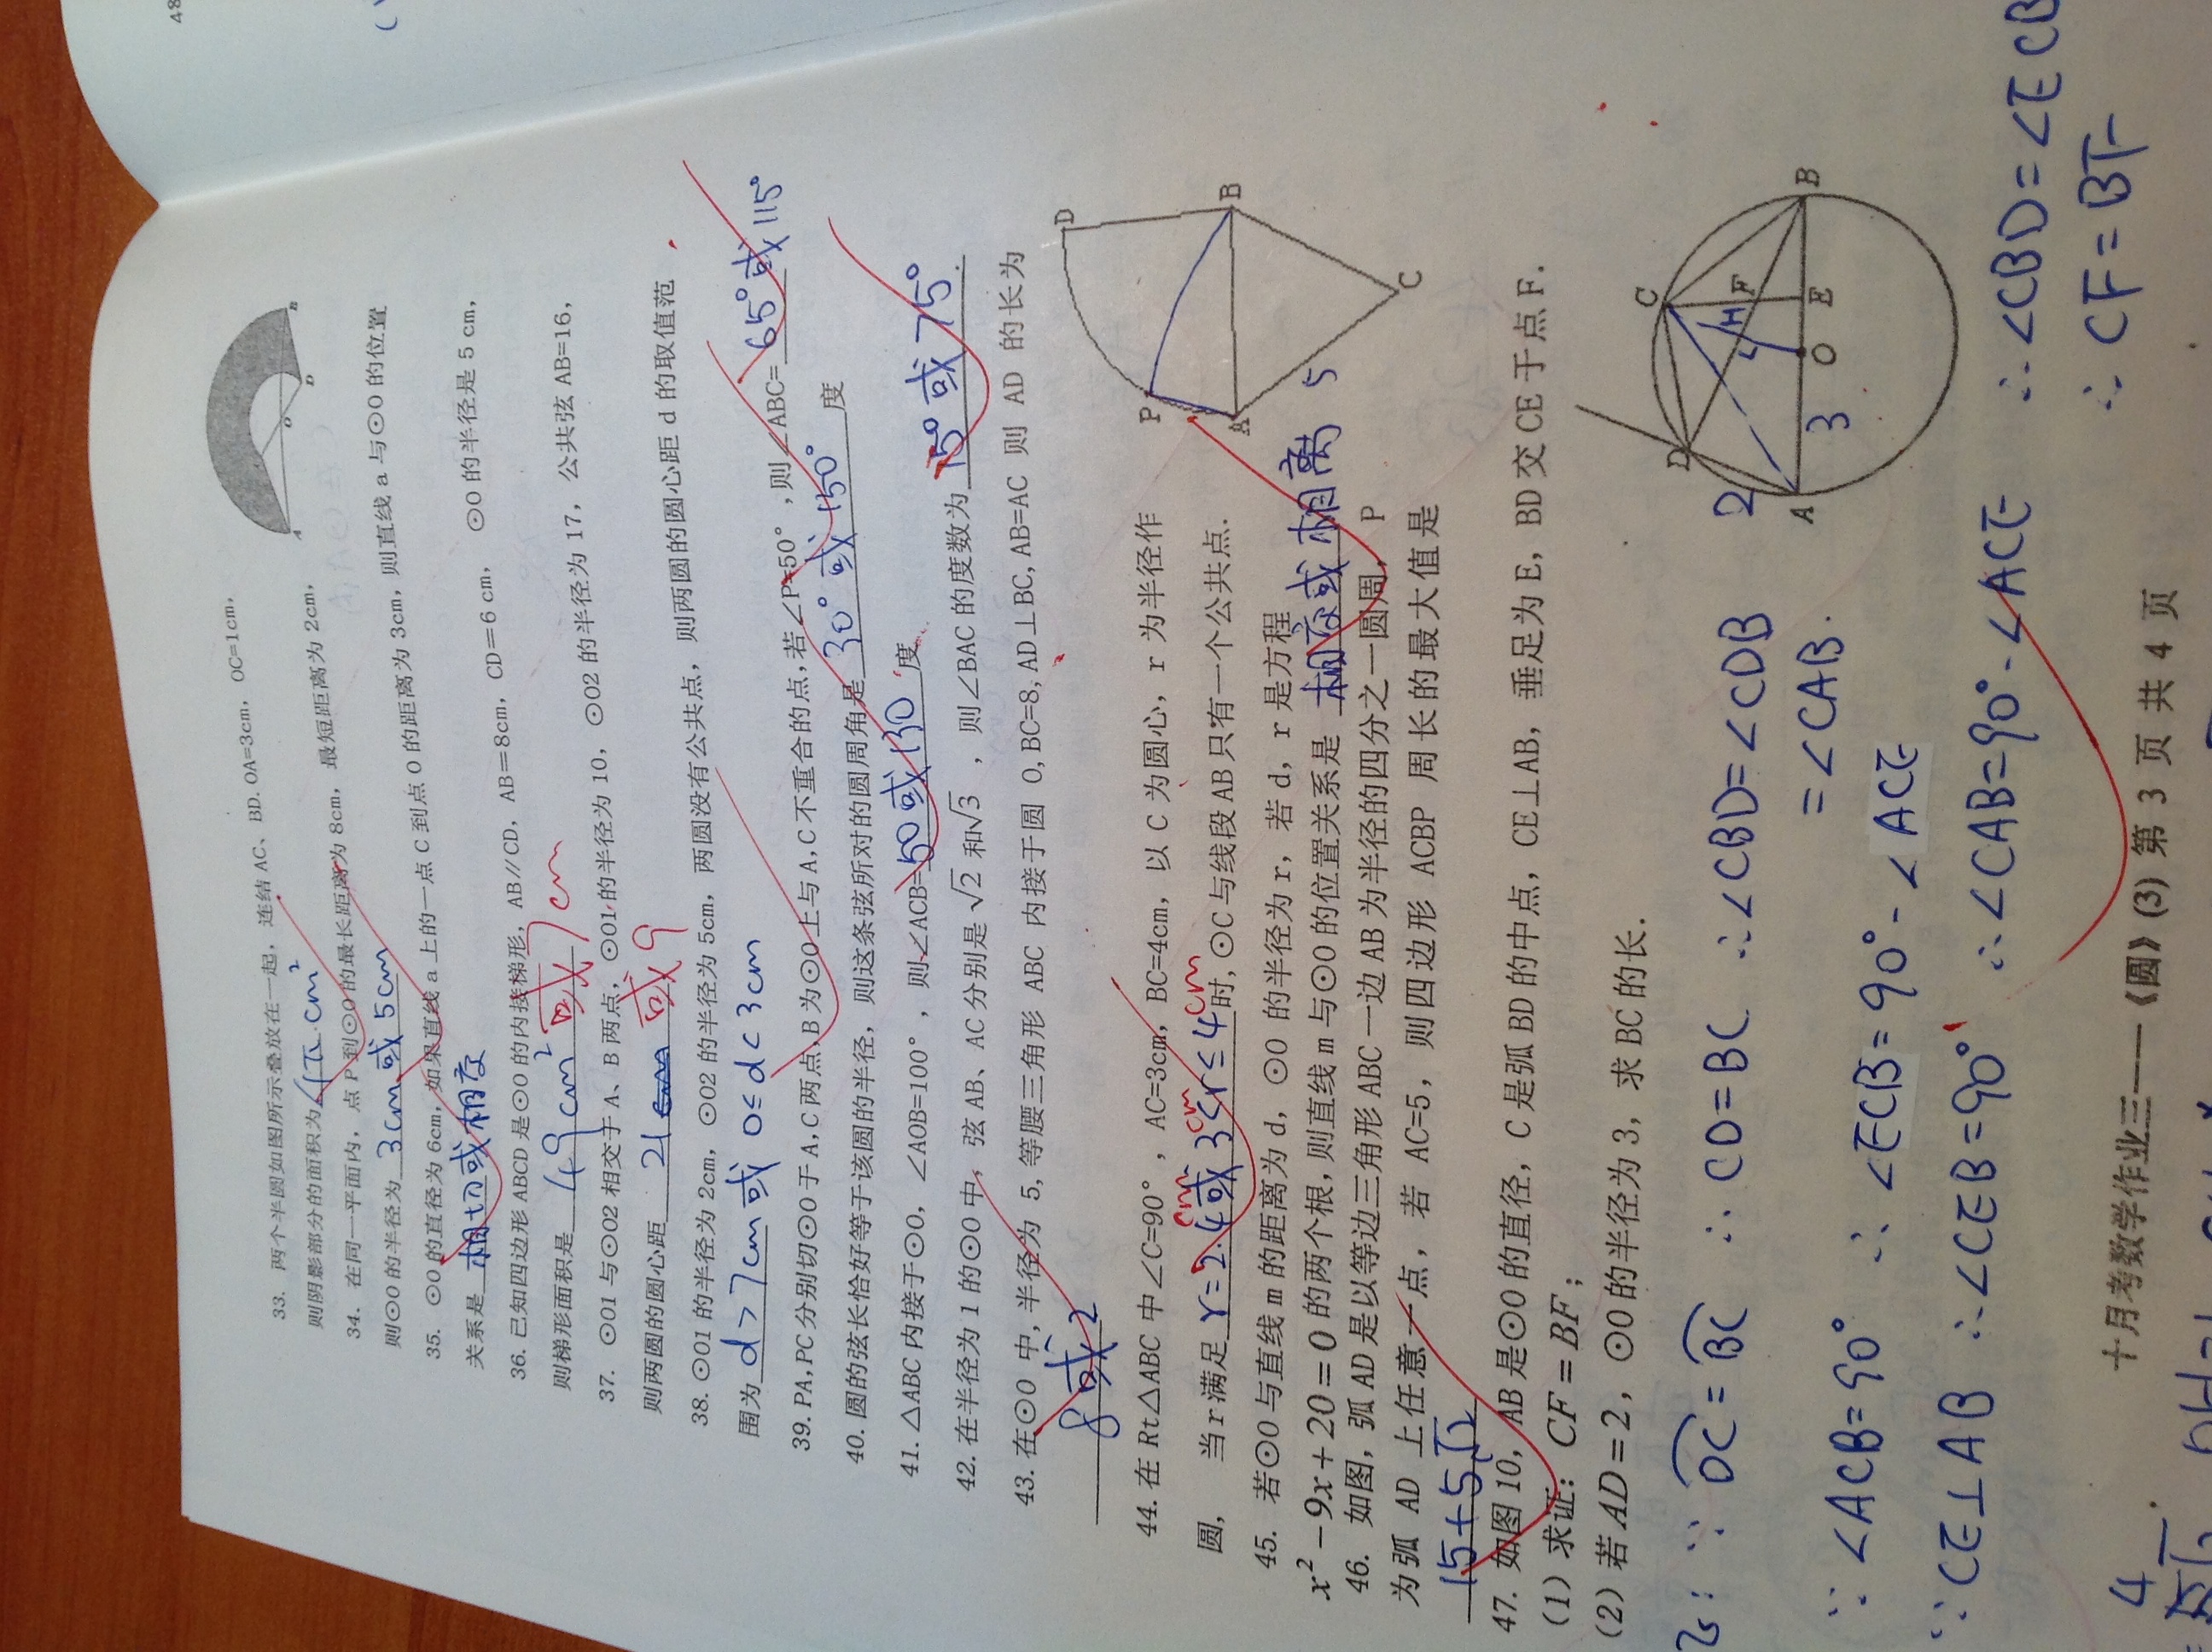 48
33. 两个半圆如图所示叠放在一起，连结AC、BD.OA=3cm，OC=1cm，
则阴影部分的面积为4π cm²
A O B
D
34. 在同一平面内，点P到⊙O的最长距离为8cm，最短距离为2cm，
则⊙O的半径为 3cm或5cm
35. ⊙O的直径为6cm，如果直线a上的一点C到点O的距离为3cm，则直线a与⊙O的位置
关系是 相切或相交
36. 已知四边形ABCD是⊙O的内接梯形，AB∥CD，AB=8cm，CD=6cm， ⊙O的半径是5cm，
则梯形面积是 49cm² 或7cm
37. ⊙O1与⊙O2相交于A、B两点，⊙O1的半径为10，⊙O2的半径为17，公共弦AB=16，
则两圆的圆心距 21 cm 或9
38. ⊙O1的半径为2cm，⊙O2的半径为5cm，两圆没有公共点，则两圆的圆心距d的取值范
围为 d>7cm或 0≤d<3cm
39. PA,PC分别切⊙O于A,C两点,B为⊙O上与A,C不重合的点,若∠P=50°,则∠ABC= 65°或115°
40. 圆的弦长恰好等于该圆的半径，则这条弦所对的圆周角是 30°或150° 度
41. △ABC内接于⊙O，∠AOB=100°，则∠ACB=50或130 度
42. 在半径为1的⊙O中，弦AB、AC分别是√2和√3 ，则∠BAC的度数为 15°或75°.
43. 在⊙O 中,半径为 5,等腰三角形 ABC 内接于圆 O,BC=8,AD⊥BC,AB=AC 则 AD 的长为
8或2
44. 在 Rt△ABC 中∠C=90°，AC=3cm，BC=4cm，以 C 为圆心，r 为半径作
cm cm cm
圆， 当r满足 r=2.4或3<r≤4 时,⊙C与线段AB只有一个公共点.
D
P
A B
C
45. 若⊙O与直线m的距离为d，⊙O 的半径为r，若d，r是方程
x²－9x+20=0的两个根,则直线m与⊙O的位置关系是 相交或相离 5
46. 如图，弧AD是以等边三角形ABC一边AB为半径的四分之一圆周，P
为弧 AD 上任意一点，若 AC=5，则四边形 ACBP 周长的最大值是
15+5√2
47. 如图10，AB是⊙O的直径，C是弧BD的中点，CE⊥AB，垂足为E，BD交CE于点F.
(1) 求证：CF=BF；
(2) 若AD=2，⊙O的半径为3，求BC的长.
D C
2 H F
A 3 O E B
∵ DC=BC ∴ CD=BC ∴∠CBD=∠CDB
=∠CAB.
∵ ∠ACB=90° ∴ ∠ECB=90°-∠ACE
∵CE⊥AB ∴∠CEB=90° ∴∠CAB=90°-∠ACE ∴∠CBD=∠ECB
∴ CF=BF
十月考数学作业三——《圆》(3) 第 3 页 共 4 页
4